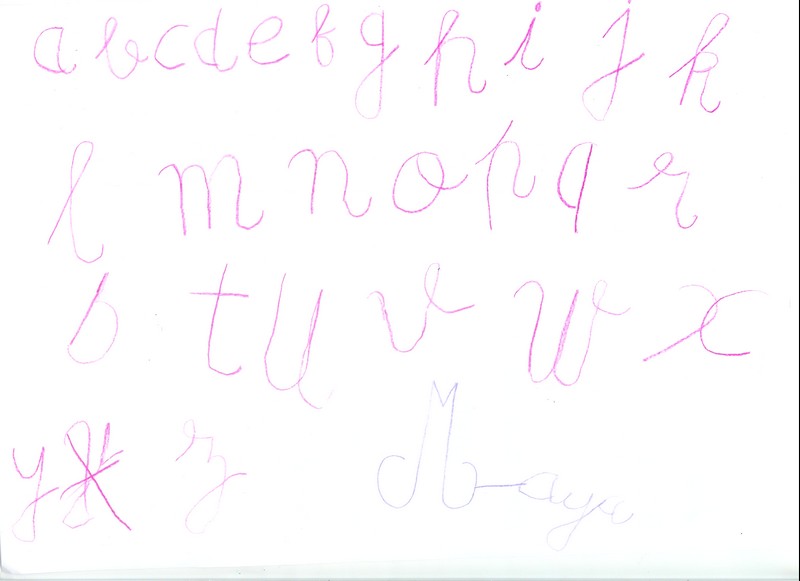 a b c d e f g h i j k
l m n o p q r
s t u v w x
y z